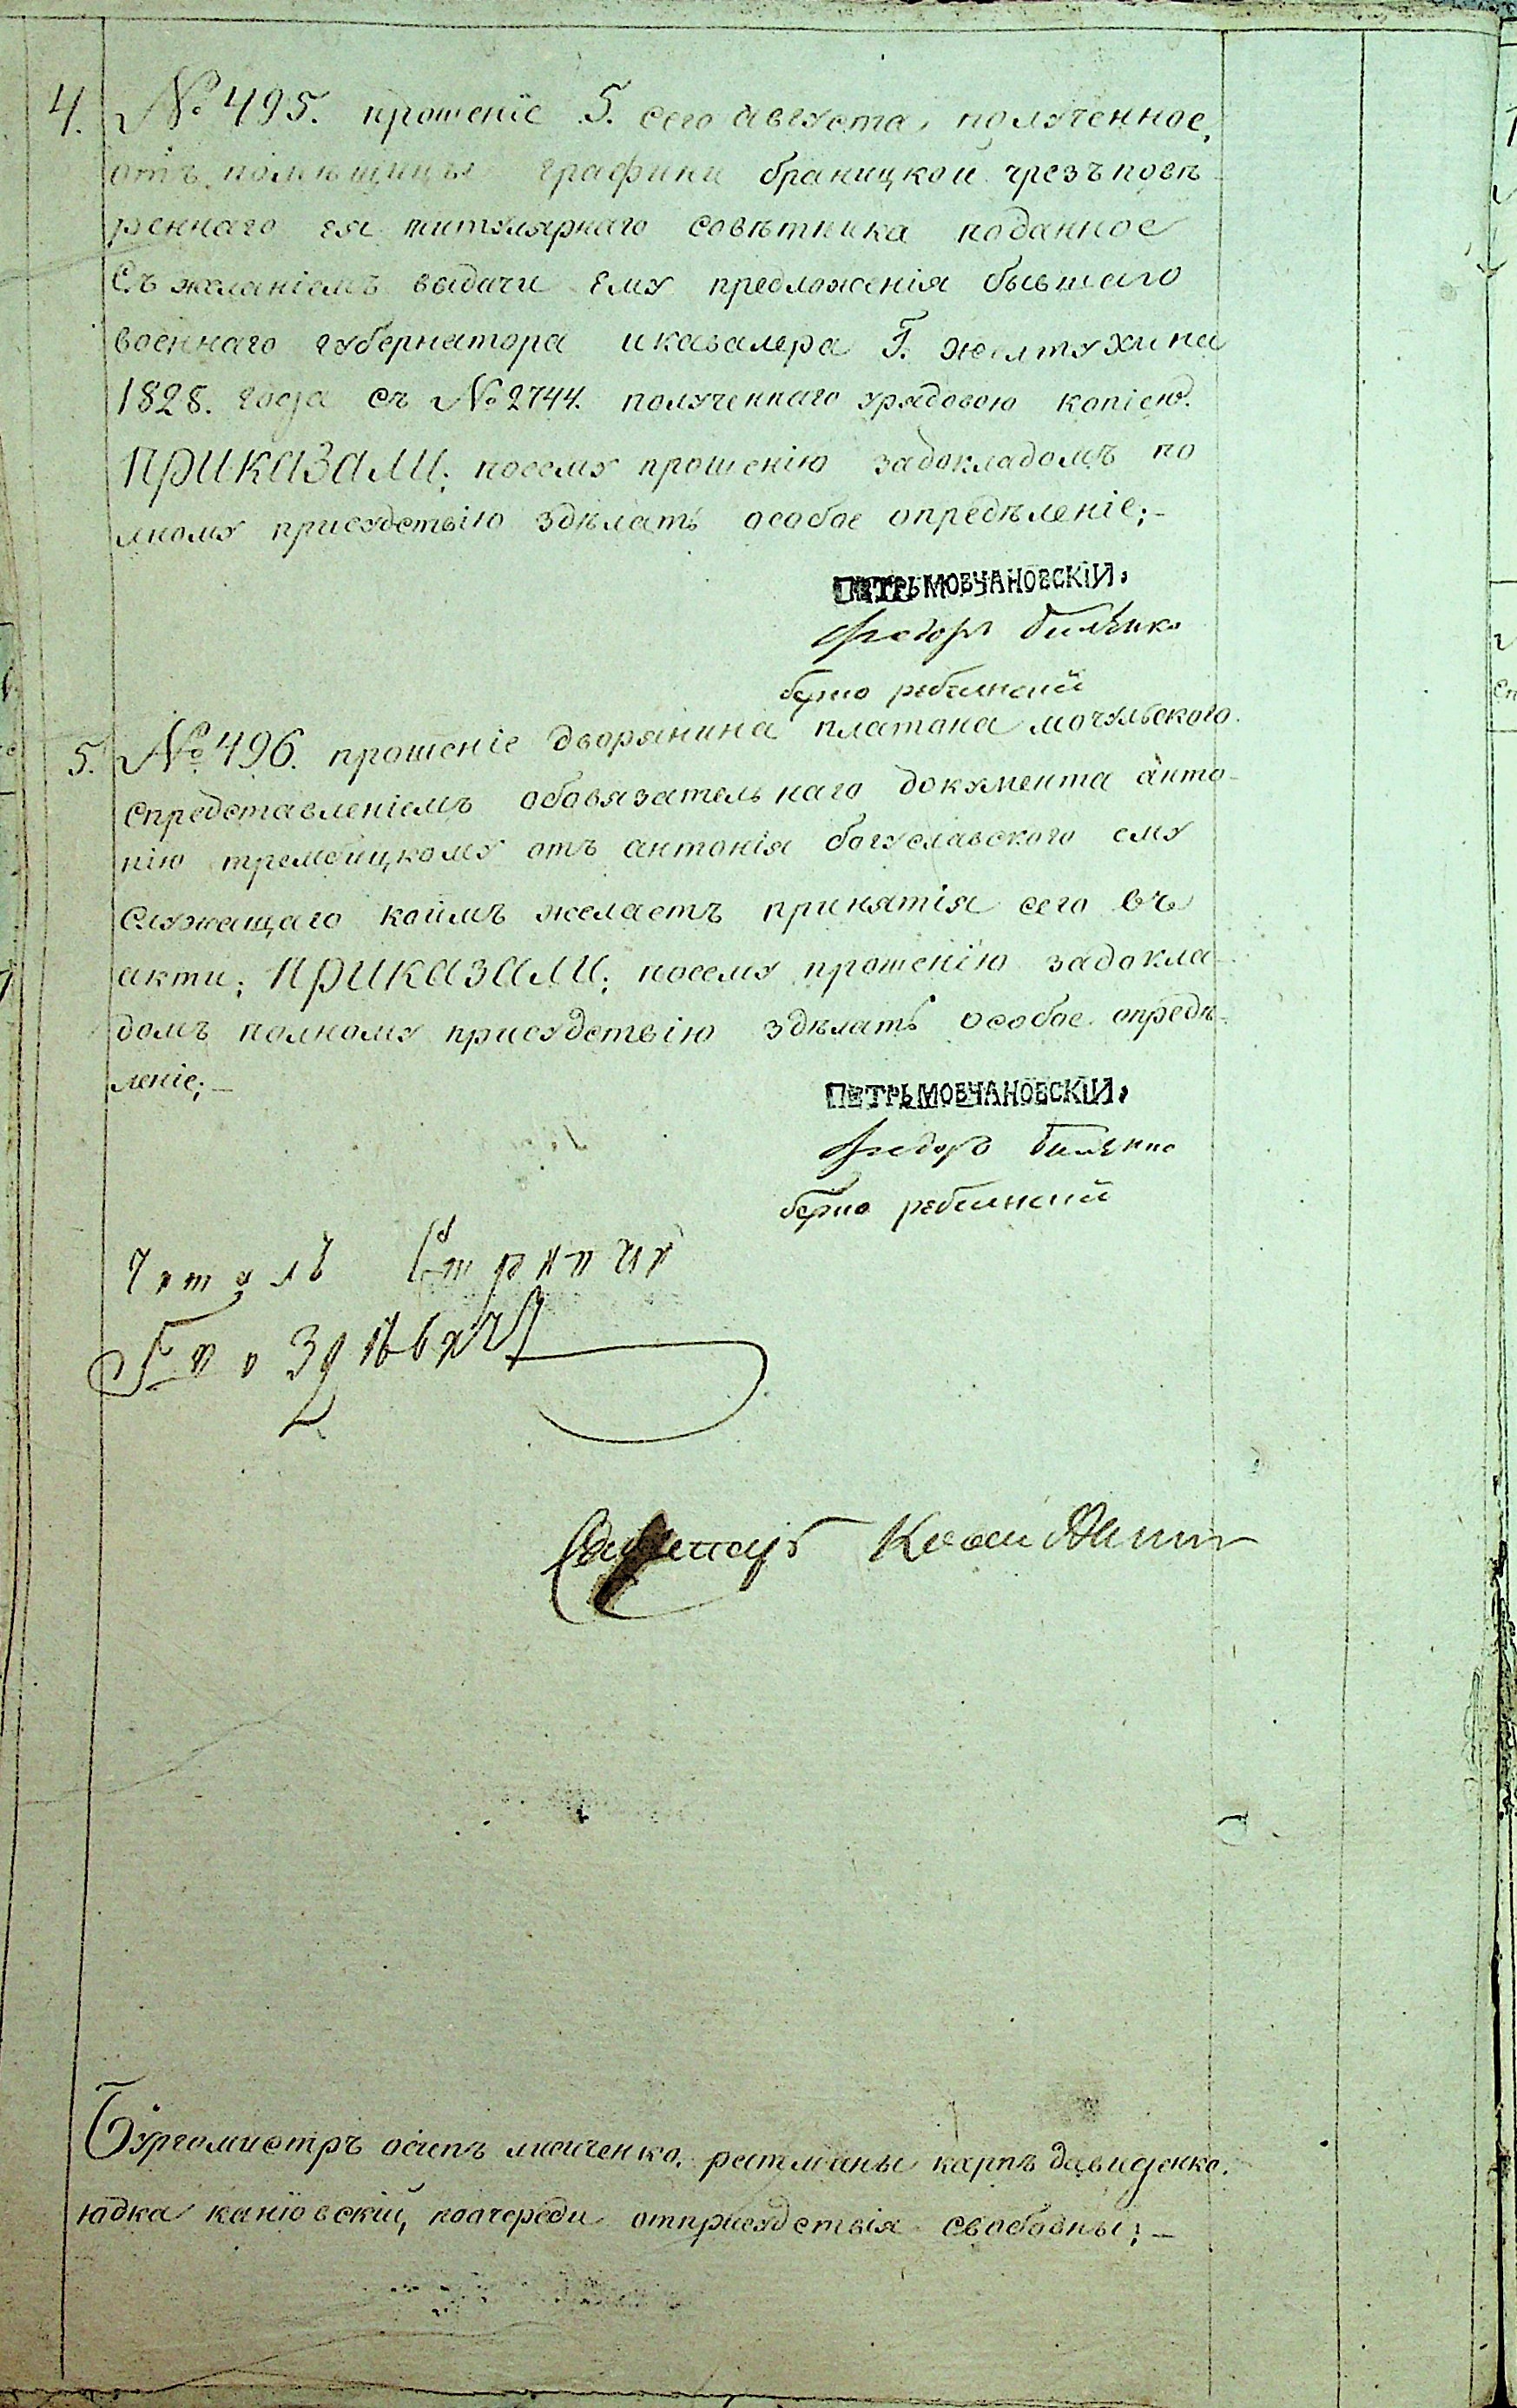 4. № 495. прошеніе 5. сего августа, полученное,
отъ помѣщицы графини браницкой чрезъ повѣ
реннаго ея титулярнаго совѣтника поданное
Съ желаніемъ выдачи ему предложенія бывшаго
военнаго губернатора икавалера Г. желтухина
1828. года съ № 2744. полученнаго урядовою копіею.
ПРИКАЗАЛИ; посему прошенію задокладомъ по
лному присудствію здѣлать особое опредѣленіе;-
ПЕТРЬ МОВЧАНОВСКІЙ,
Федоръ Биленко
берко ребелнский
5. № 496. прошеніе дворянина платона мочульского.
Спредставленіемъ обовязательнаго документа анто-
нію трембицкому отъ антонія богуславского ему
Служащаго коимъ желаетъ принятія сего въ
акти; ПРИКАЗАЛИ; посему прошенію задокла-
домъ полному присудствію здѣлать особое опредѣ-
леніе;-
ПЕТРЬ МОВЧАНОВСКІЙ,
Федоръ Биленко
берко ребелнский
Читалъ Стряпчи
Секретарь
Бургомистръ осипъ лисиченко, ратманы карпъ давиденко.
юдка каніовскій, поочереди отприсудствія свободны;-